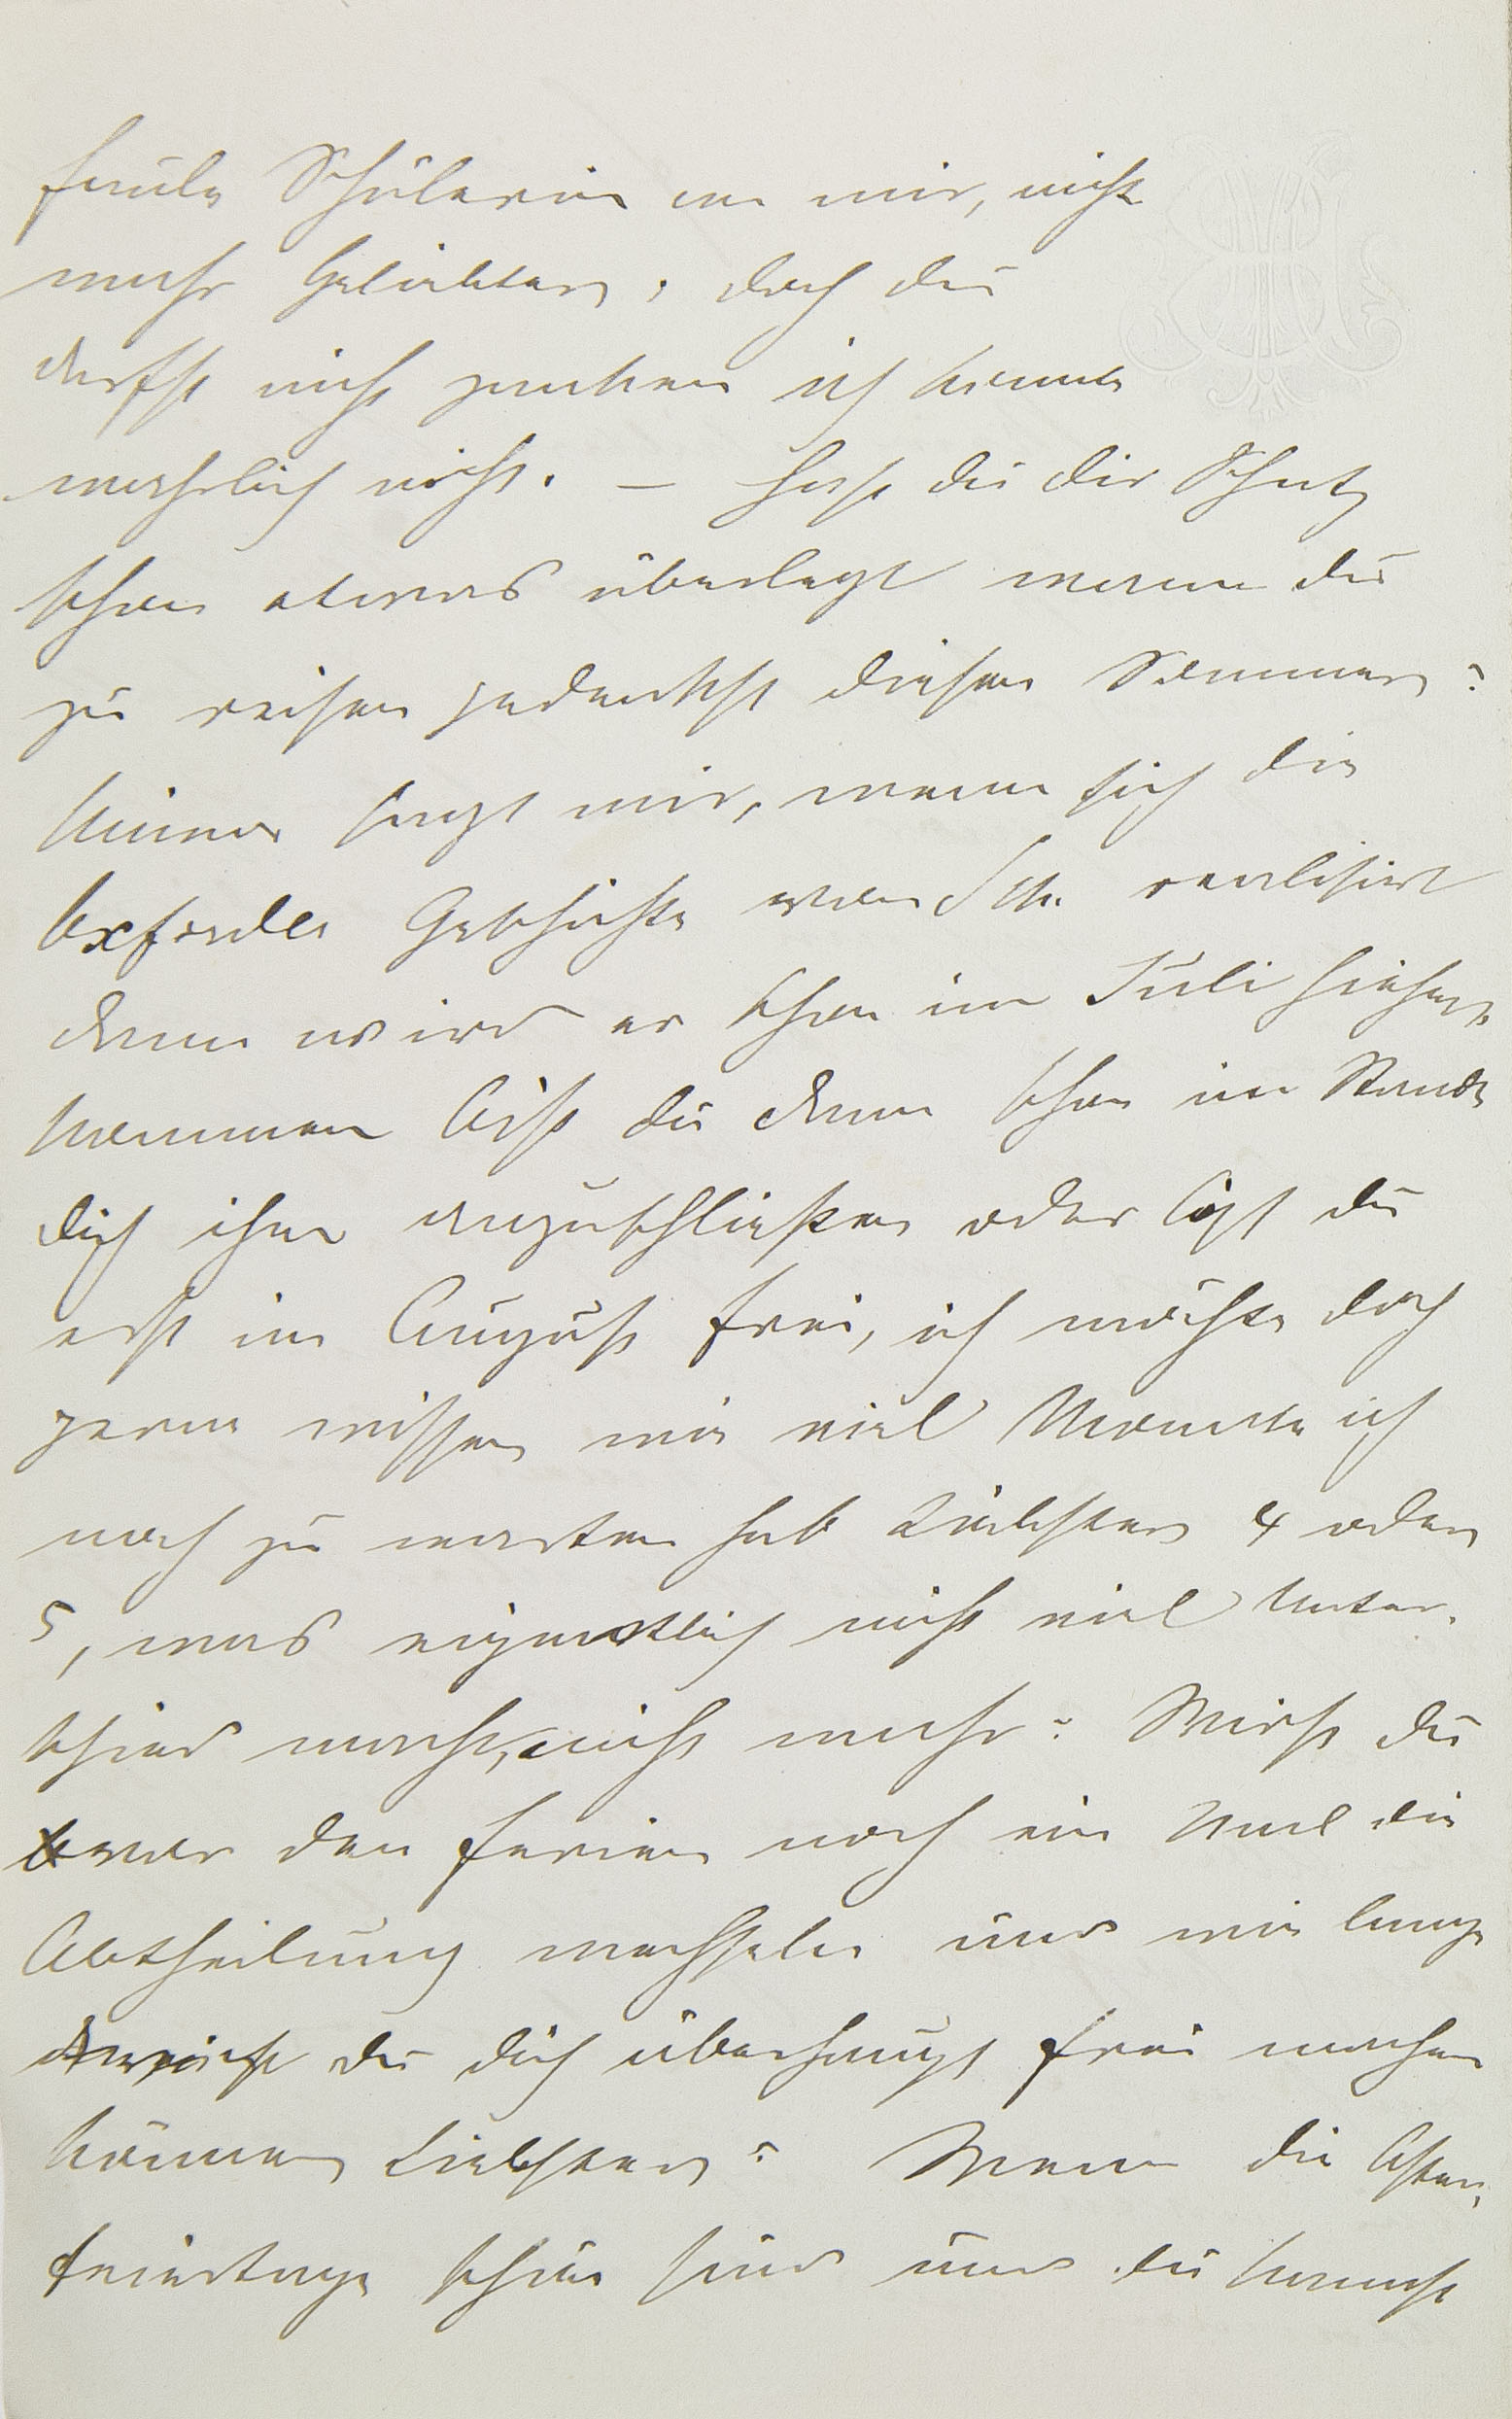 faule Schülerin an mir, nicht
wahr Geliebter, doch du
darfst nicht zanken ich konnte
wahrlich nicht. – Hast du dir Schatz
schon etwas überlegt wann du
zu reisen gedenkst diesen Sommer?
Minna sagt mir, wenn sich die
Oxforder Geschichte von Sch. realisirt
dann wird er schon im Juli hieher
kommen bist du dann schon im Stande
dich ihm anzuschließen oder bist du
erst im August frei, ich möchte doch
gerne wissen wie viel Monate ich
noch zu warten hab Liebster 4 oder
5, was eigentlich nicht viel Unter-
schied macht, nicht wahr? Wirst du
vor den Ferien noch ein Mal die
Abtheilung wechseln und wie lange
wirst du dich überhaupt frei machen
können Liebster? Wenn die Oster-
feiertage schön sind und du kannst